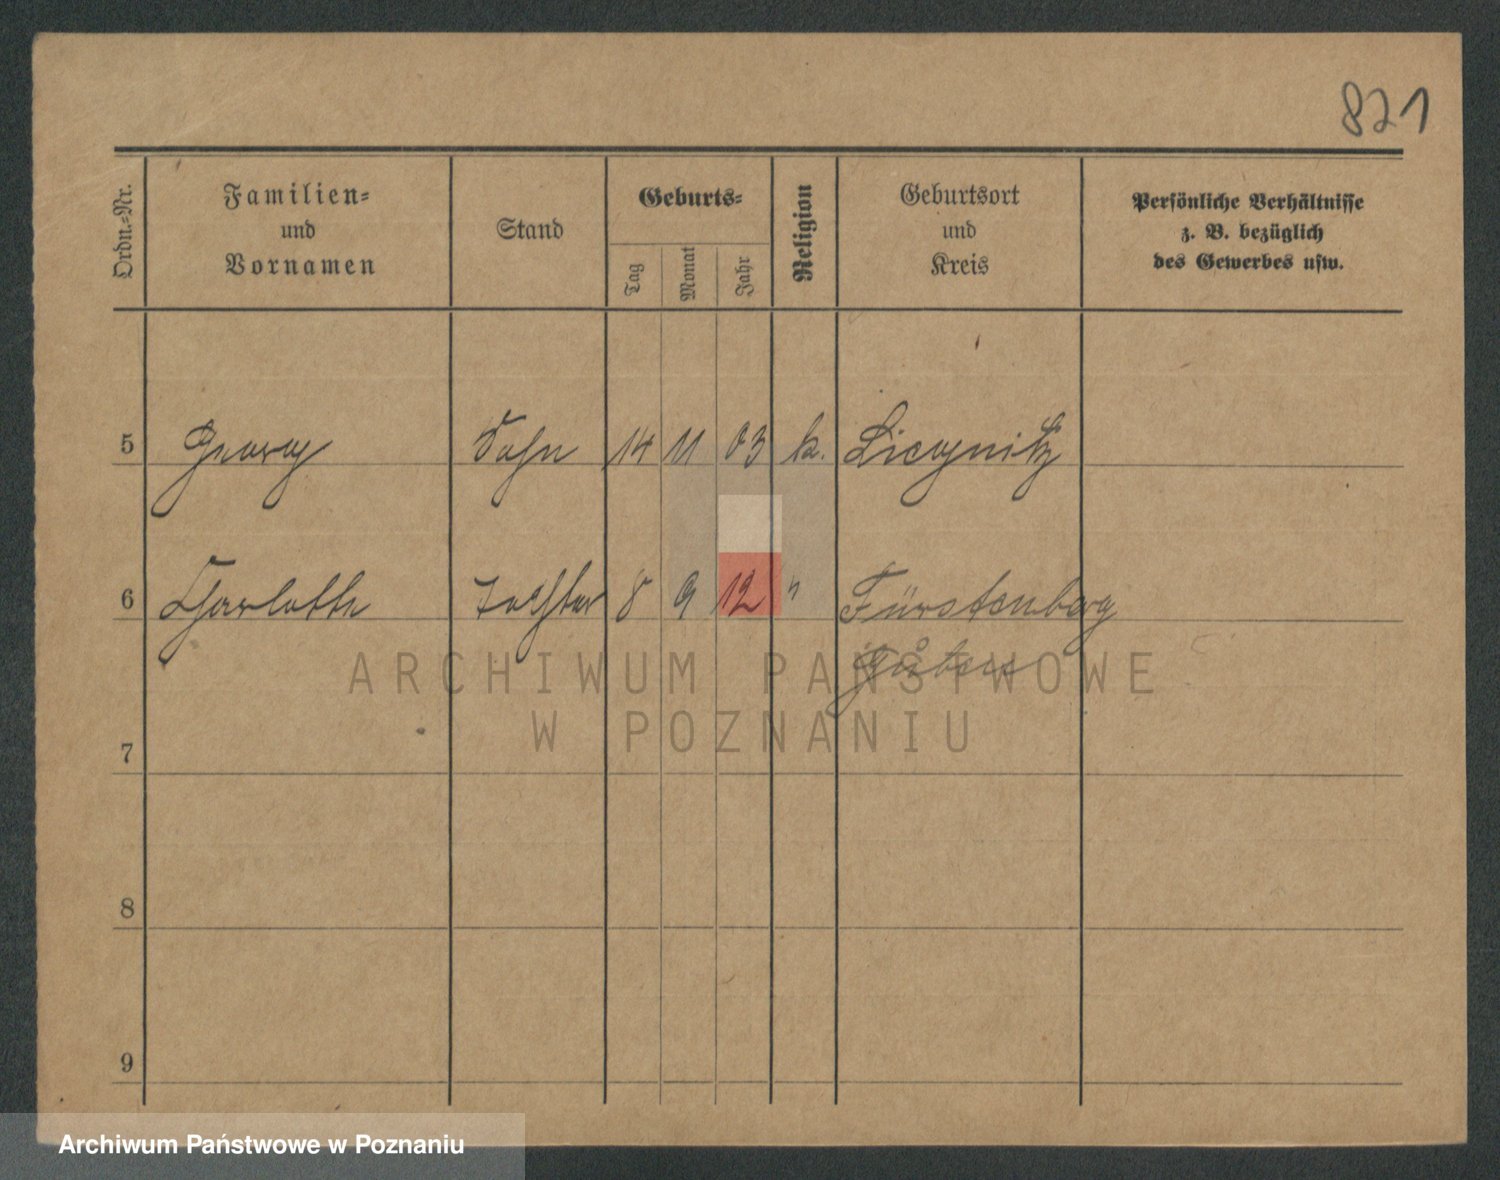 821
Ordn.-Nr.
Familien-
und
Vornamen
Stand
Geburts-
Tag
Monat
Jahr
Religion
Geburtsort
und
Kreis
Persönliche Verhältnisse
z. B. bezüglich
des Gewerbes usw.
5 Georg Sohn 14 11 03 k. Liegnitz
6 Charlotte Tochter 8 9 12 " Fürstenberg
Guben
ARCHIWUM PAŃSTWOWE
W POZNANIU
7
8
9
Archiwum Państwowe w Poznaniu